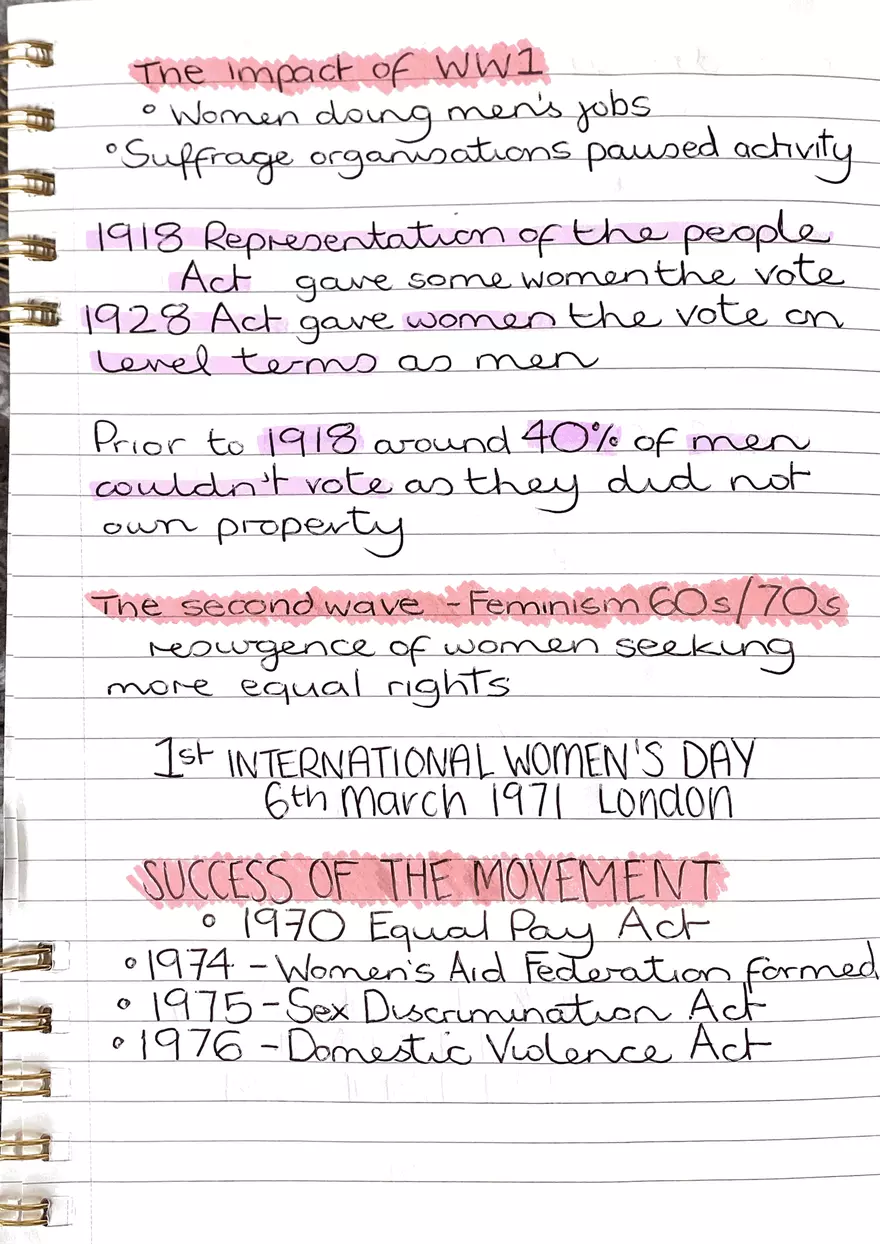 The impact of WW1
° Women doing men's jobs
° Suffrage organisations paused activity
1918 Representation of the people
Act gave some women the vote
1928 Act gave women the vote on
level terms as men
Prior to 1918 around 40% of men
couldn't vote as they did not
own property
The second wave - Feminism 60s/70s
resurgence of women seeking
more equal rights
1st INTERNATIONAL WOMEN'S DAY
6th March 1971 London
SUCCESS OF THE MOVEMENT
° 1970 Equal Pay Act
° 1974 - Women's Aid Federation formed
° 1975 - Sex Discrimination Act
° 1976 - Domestic Violence Act